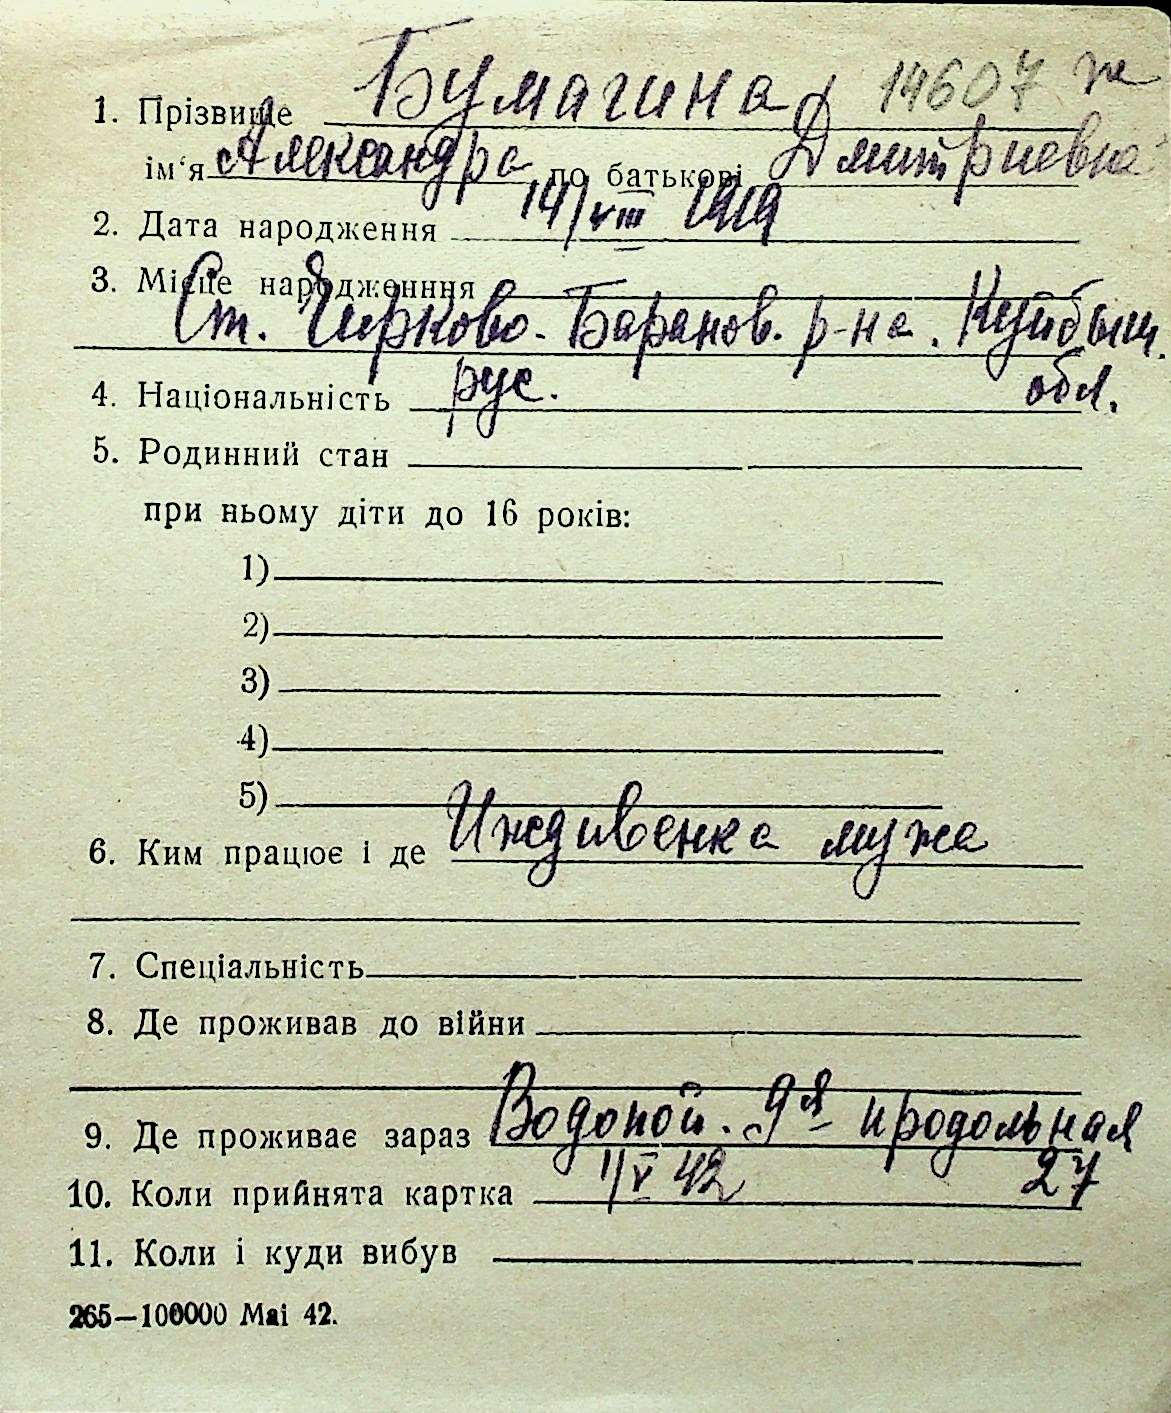 14607 ж
1. Прізвище Бумагина
ім‘я Александра по батькові Дмитриевна
2. Дата народження 14/VIII 1919
3. Місце народженння
Ст. Чирково - Баранов. р-на. Куйбыш.
обл.
4. Національність рус.
5. Родинний стан
при ньому діти до 16 років:
1)
2)
3)
4)
5)
6. Ким працює і де Иждивенка мужа
7. Спеціальність
8. Де проживав до війни
9. Де проживає зараз Водопой. 9я продольная
27
10. Коли прийнята картка 1/V 42
11. Коли і куди вибув
265—100000 Mai 42.